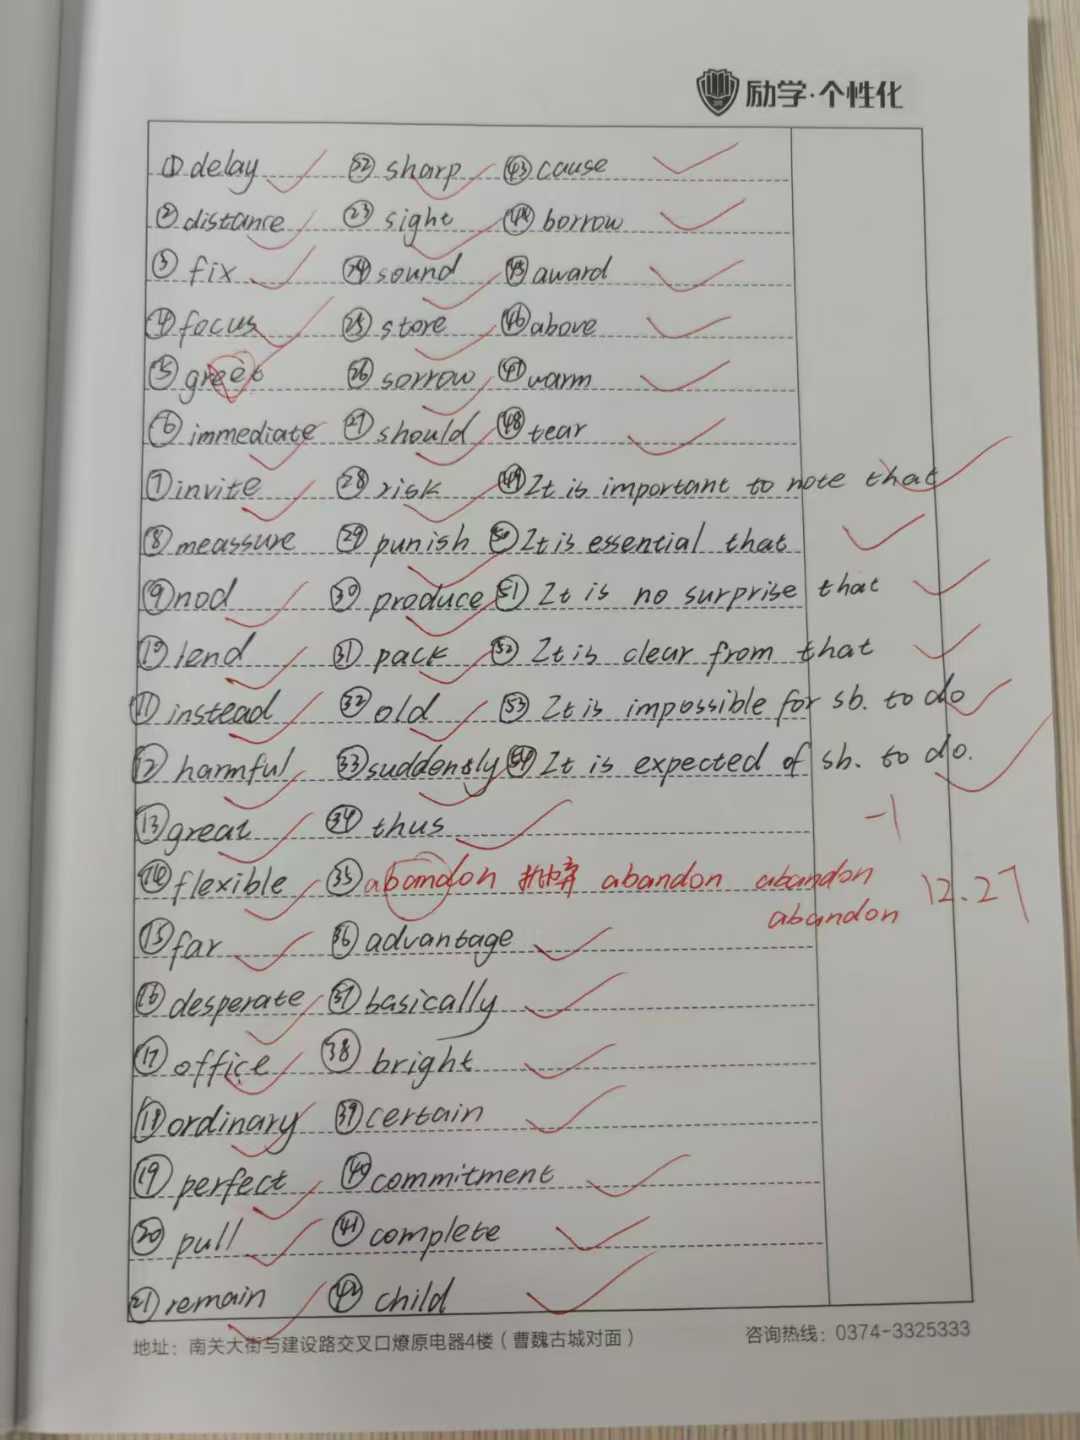 励学·个性化
①delay ㉒sharp ㊸cause
②distance ㉓sight ㊹borrow
③fix ㉔sound ㊺award
④focus ㉕store ㊻above
⑤greet ㉖sorrow ㊼warm
⑥immediate ㉗should ㊽tear
⑦invite ㉘risk ㊾It is important to note that
⑧meassure ㉙punish ㊿It is essential that
⑨nod ㉚produce 51 It is no surprise that
⑩lend ㉛pack 52 It is clear from that
⑪instead ㉜old 53 It is impossible for sb. to do
⑫harmful ㉝suddenly 54 It is expected of sb. to do.
⑬great ㉞thus -1
⑭flexible ㉟abandon abandon abandon 12.27
abandon
⑮far ㊱advantage
⑯desperate ㊲basically
⑰office ㊳bright
⑱ordinary ㊴certain
⑲perfect ㊵commitment
⑳pull ㊶complete
㉑remain ㊷child
地址：南关大街与建设路交叉口燎原电器4楼（曹魏古城对面） 咨询热线：0374-3325333